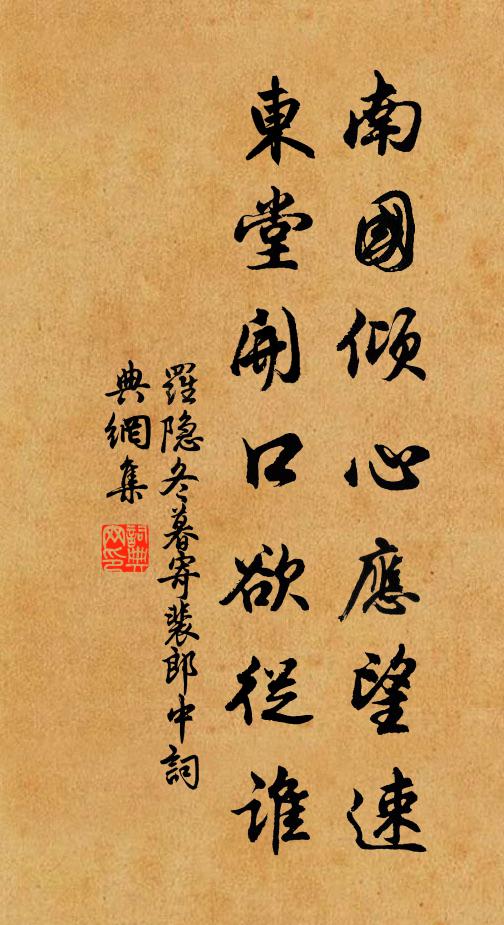 南國傾心應望速
東堂開口欲從誰
羅隐冬暮寄裴郎中詞
典網集
詞典
网印